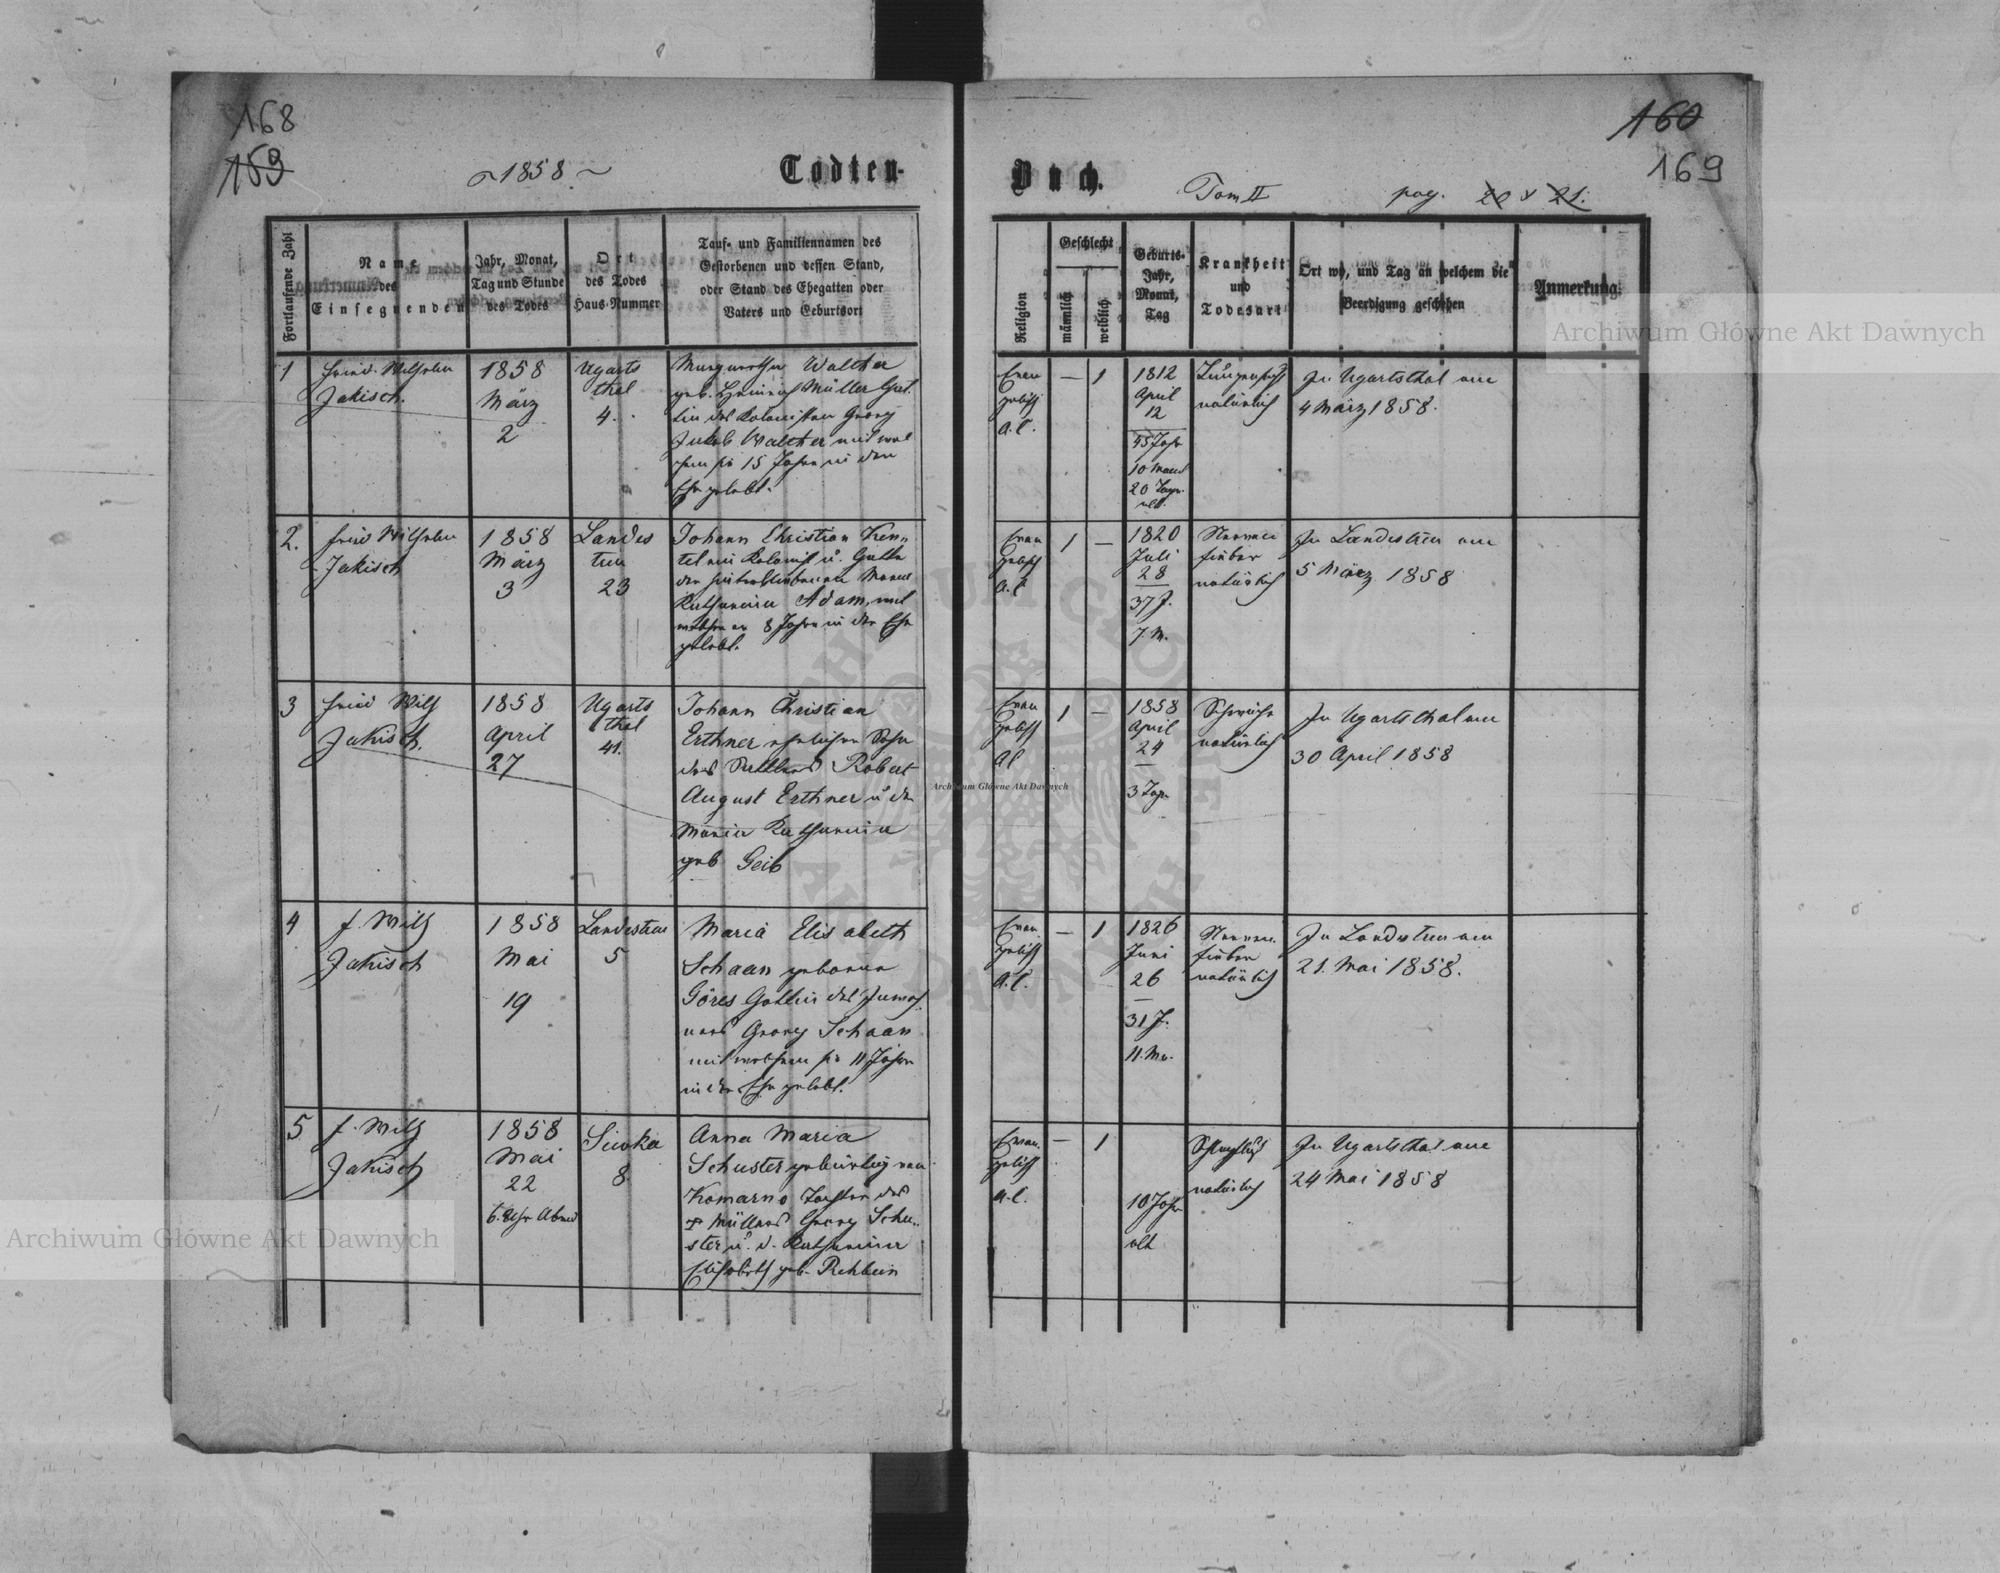 168
159
~ 1858 ~
Todten-
Fortlaufende Zahl
Name
des
Einsegnenden
Jahr, Monat,
Tag und Stunde
des Todes
Ort
des Todes
Haus-Nummer
Tauf- und Familiennamen des
Gestorbenen und dessen Stand,
oder Stand des Ehegatten oder
Vaters und Geburtsort
1
Fried. Wilhelm
Jakisch.
1858
März
2
Ugarts
thal
4.
Margaretha Walther
geb. Heinrich Müller Gat.
tin des Kolonisten Georg
Jakob Walther mit wel
chem sie 15 Jahre in der
Ehe gelebt.
2.
Fried Wilhelm
Jakisch
1858
März
3
Landes
treu
23
Johann Christian Ken„
tel ein Kolonist u. Gatte
der hinterbliebenen Maria
Katharina Adam, mit
welcher er 8 Jahre in der Ehe
gelebt.
3
Fried Wilh
Jakisch.
1858
April
27
Ugarts
thal
41.
Johann Christian
Erthner ehelicher Sohn
des Sattlers Robert
August Erthner u der
Maria Katharina
geb Geib
4
F. Wilh
Jakisch
1858
Mai
19
Landestreu
5
Maria Elisabeth
Schaan geborene
Göres Gattin des
Georg Schaan
mit welchem sie 11 Jahre
in der Ehe gelebt.
5
F. Wilh
Jakisch
1858
Mai
22
6. Uhr Abend
Siwka
8
Anna Maria
Schuster gebürtig von
Komarno Tochter des
Müllers Georg Schu„
ster u. d. Katharina
Elisabeth geb. Rehbein
160
169
Buch.
Tom II
pag. 20 & 21.
Religion
Geschlecht
männlich
weiblich
Geburts-
Jahr,
Monat,
Tag
Krankheit
und
Todesart
Ort wo, und Tag an welchem die
Beerdigung geschehen
Anmerkung.
Evan
gelisch
A. C.
—
1
1812
April
12
45 Jahr
10 Monat
20 Tage
alt.
Lungensucht
natürlich
In Ugartsthal am
4 März 1858.
Evan
gelisch
A. C
1
—
1820
Juli
28
37 J.
7 M.
Nerven
fieber
natürlich
In Landestreu am
5 März 1858
Evan
gelisch
A C
1
—
1858
April
24
3 Tage
Schwäche
natürlich
In Ugartsthal am
30 April 1858
Evan.
gelisch
A. C.
—
1
1826
Juni
26
31 J.
11. Mo.
Nerven.
fieber
natürlich
In Landestreu am
21. Mai 1858.
Evan.
gelisch
A. C.
—
1
10 Jahr
alt
Schlagfluß
natürlich
In Ugartsthal am
24 Mai 1858
Archiwum Główne Akt Dawnych
Archiwum Główne Akt Dawnych
Archiwum Główne Akt Dawnych